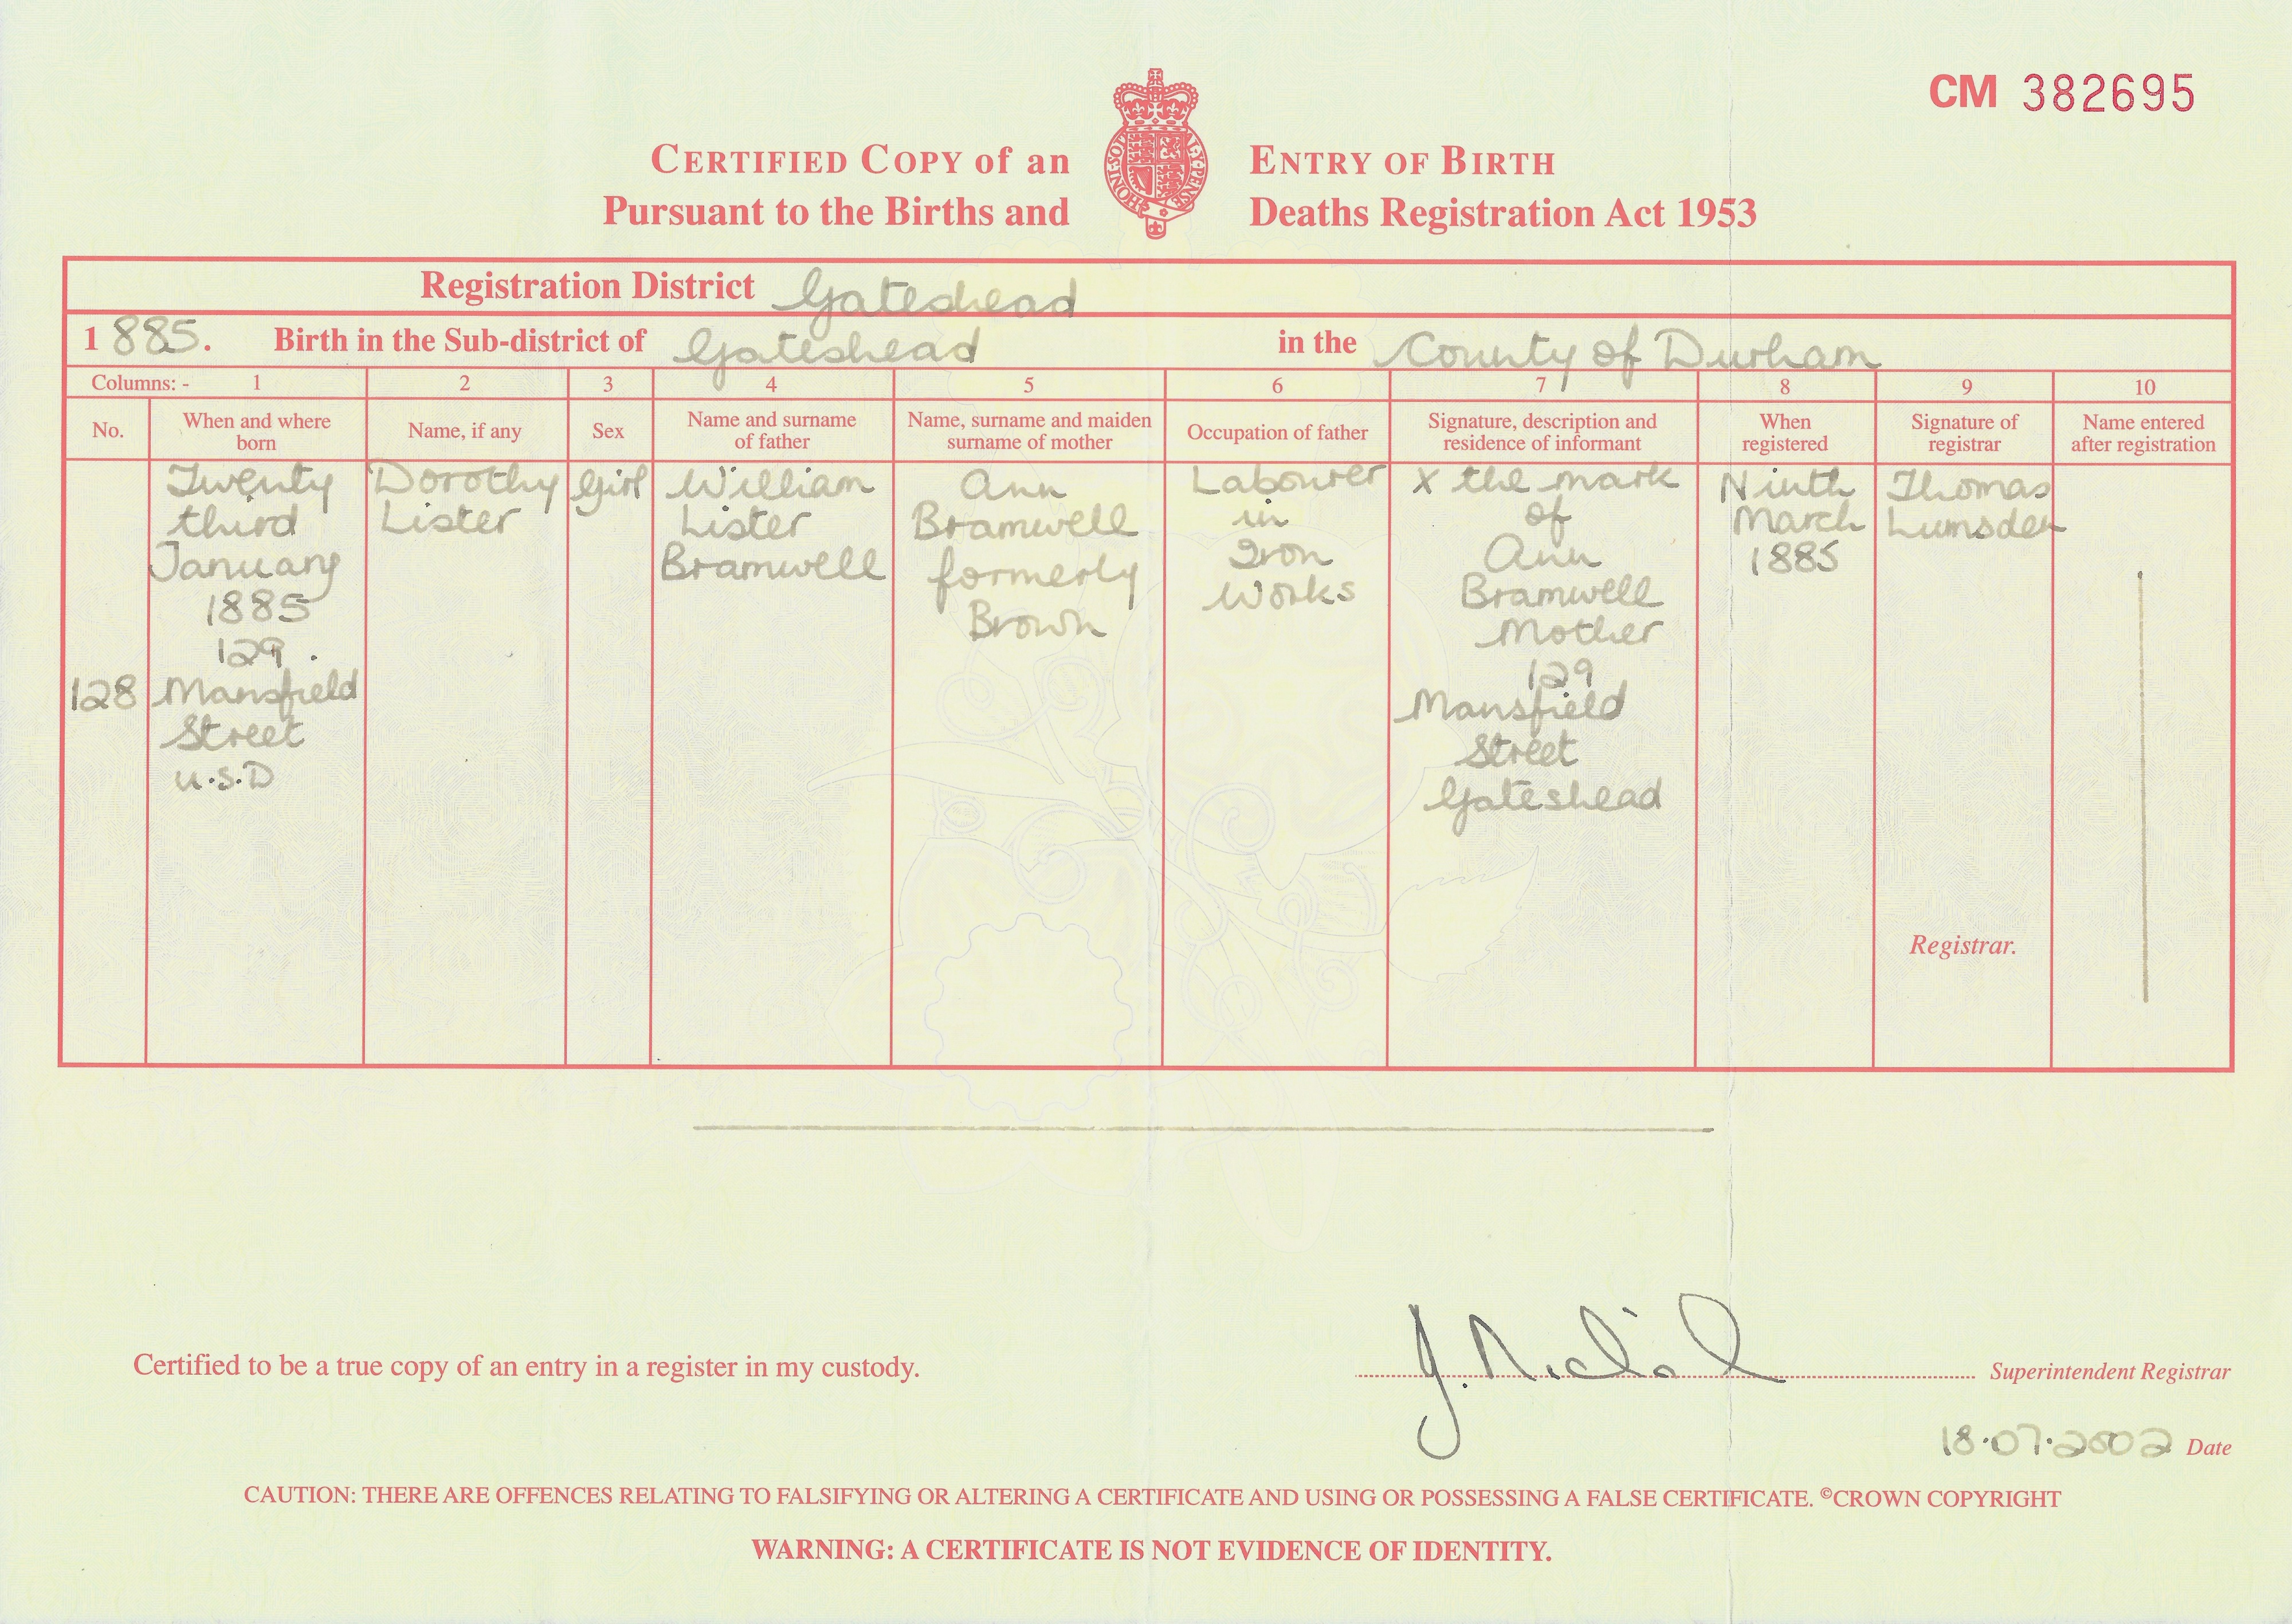 CM 382695
CERTIFIED COPY of an ENTRY OF BIRTH
Pursuant to the Births and Deaths Registration Act 1953
HONI·SOIT AL·Y·PENSE
Registration District Gateshead
1885. Birth in the Sub-district of Gateshead in the County of Durham
Columns: - 1 2 3 4 5 6 7 8 9 10
No.
When and where
born
Name, if any
Sex
Name and surname
of father
Name, surname and maiden
surname of mother
Occupation of father
Signature, description and
residence of informant
When
registered
Signature of
registrar
Name entered
after registration
128
Twenty
third
January
1885
129
Mansfield
Street
U.S.D
Dorothy
Lister
Girl
William
Lister
Bramwell
Ann
Bramwell
formerly
Brown
Labourer
in
Iron
Works
X the mark
of
Ann
Bramwell
Mother
129
Mansfield
Street
Gateshead
Ninth
March
1885
Thomas
Lumsden
Registrar.
Certified to be a true copy of an entry in a register in my custody.
Superintendent Registrar
18·07·2002 Date
CAUTION: THERE ARE OFFENCES RELATING TO FALSIFYING OR ALTERING A CERTIFICATE AND USING OR POSSESSING A FALSE CERTIFICATE. ©CROWN COPYRIGHT
WARNING: A CERTIFICATE IS NOT EVIDENCE OF IDENTITY.